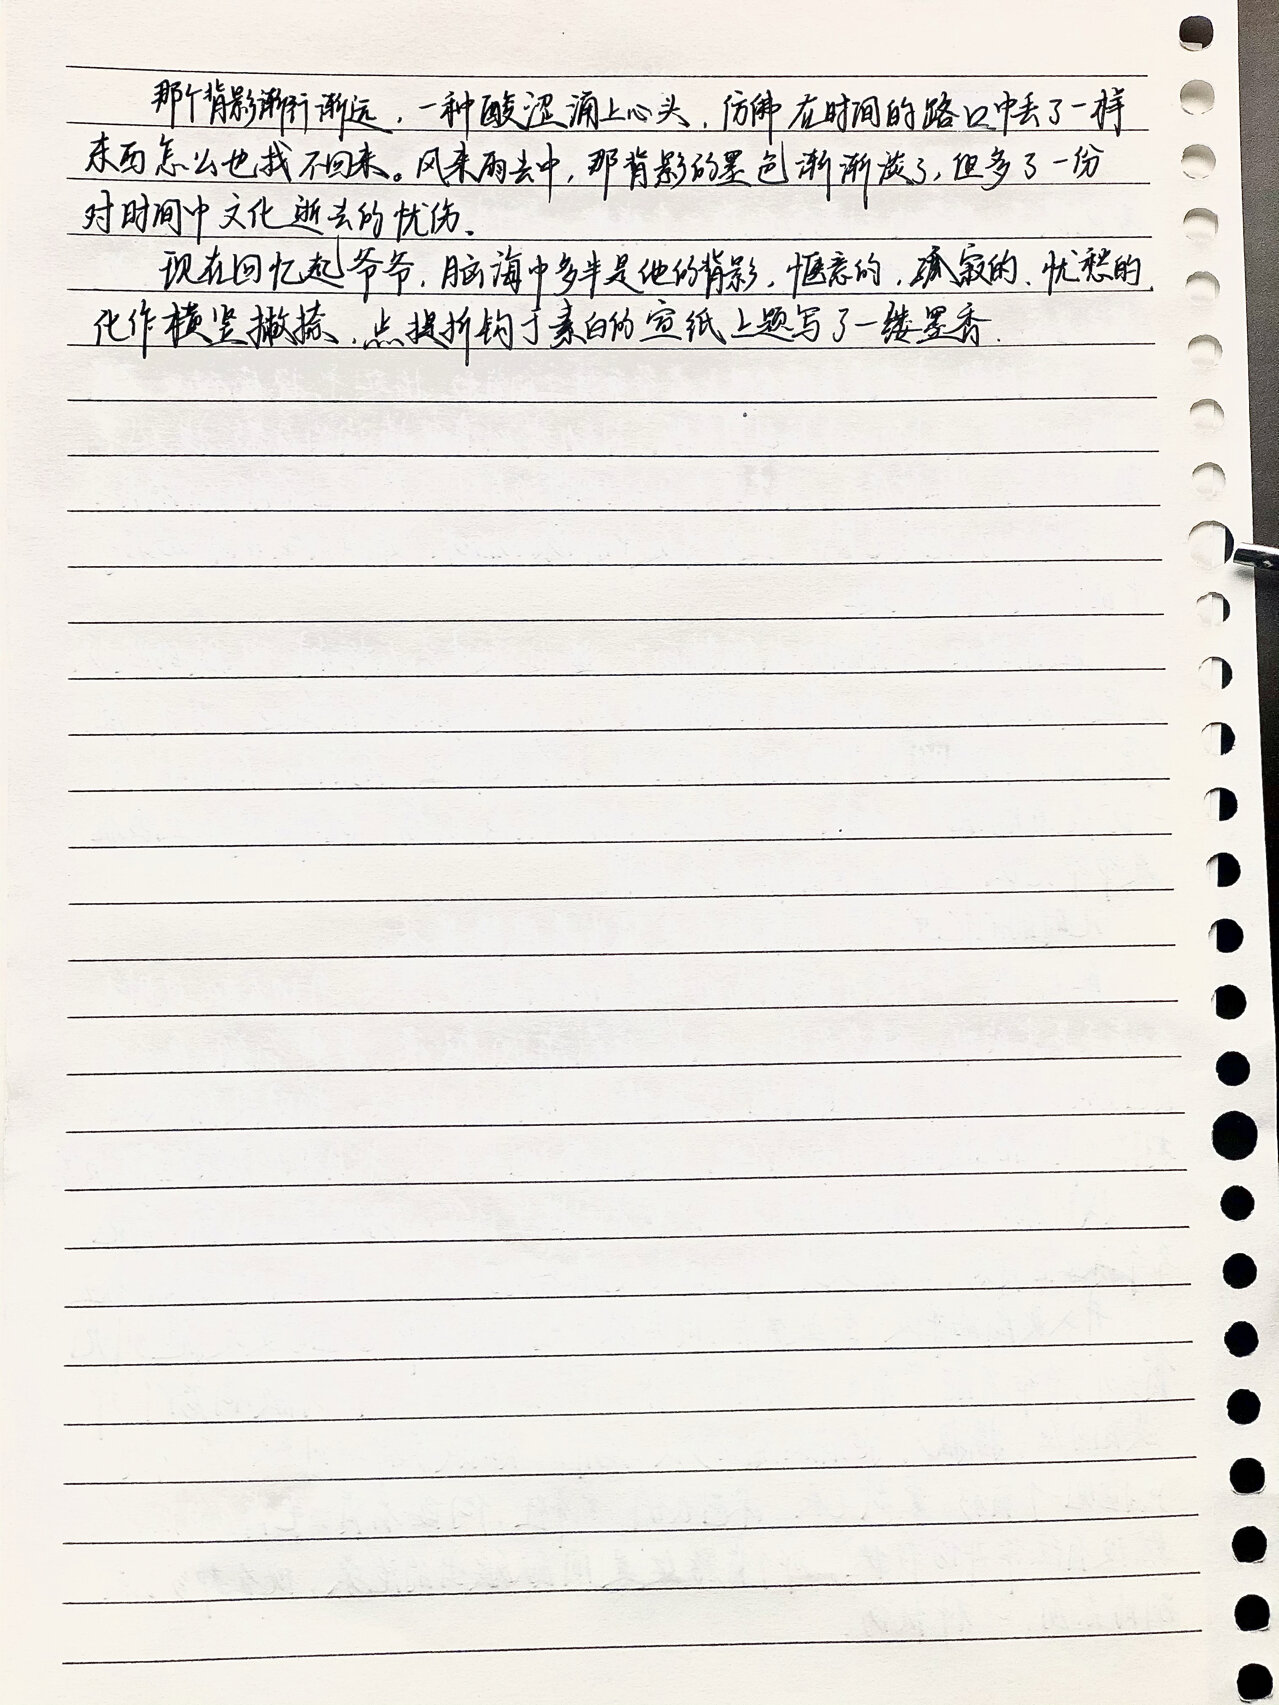 那个背影渐行渐远，一种酸涩涌上心头，仿佛在时间的路口中丢了一样
东西怎么也找不回来。风来雨去中，那背影的墨色渐渐淡了，但多了一份
对时间中文化逝去的忧伤。
现在回忆起爷爷，脑海中多半是他的背影，惬意的，孤寂的，忧愁的，
化作横竖撇捺，点提折钩于素白的宣纸上题写了一缕墨香.